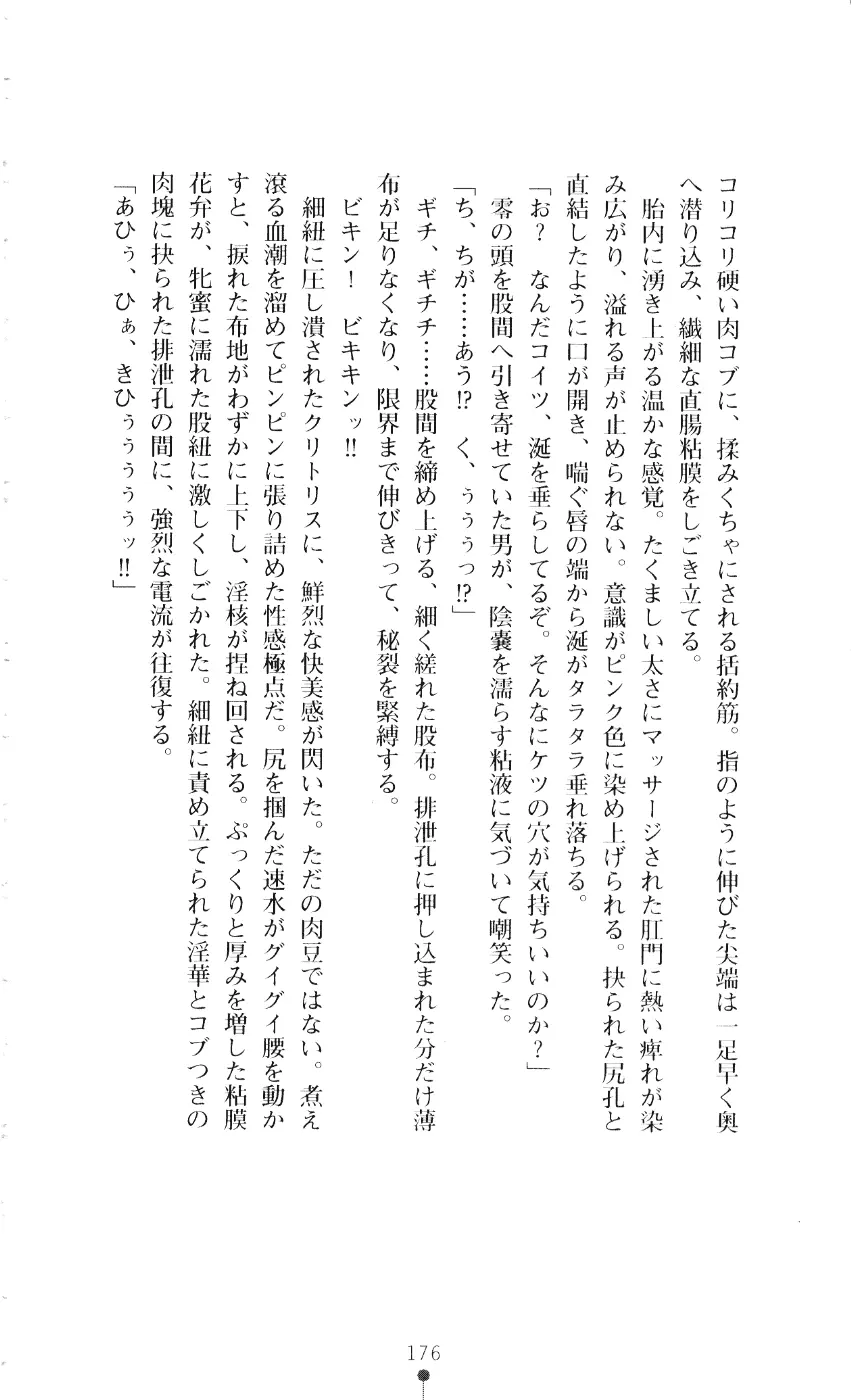 コリコリ硬い肉コブに、揉みくちゃにされる括約筋。指のように伸びた尖端は一足早く奥
へ潜り込み、繊細な直腸粘膜をしごき立てる。
胎内に湧き上がる温かな感覚。たくましい太さにマッサージされた肛門に熱い痺れが染
み広がり、溢れる声が止められない。意識がピンク色に染め上げられる。抉られた尻孔と
直結したように口が開き、喘ぐ唇の端から涎がタラタラ垂れ落ちる。
「お？　なんだコイツ、涎を垂らしてるぞ。そんなにケツの穴が気持ちいいのか？」
零の頭を股間へ引き寄せていた男が、陰嚢を濡らす粘液に気づいて嘲笑った。
「ち、ちが……あう!?　く、ぅぅぅっ!?」
ギチ、ギチチ……股間を締め上げる、細く縒れた股布。排泄孔に押し込まれた分だけ薄
布が足りなくなり、限界まで伸びきって、秘裂を緊縛する。
ビキン！　ビキキンッ!!
細紐に圧し潰されたクリトリスに、鮮烈な快美感が閃いた。ただの肉豆ではない。煮え
滾る血潮を溜めてピンピンに張り詰めた性感極点だ。尻を掴んだ速水がグイグイ腰を動か
すと、捩れた布地がわずかに上下し、淫核が捏ね回される。ぷっくりと厚みを増した粘膜
花弁が、牝蜜に濡れた股紐に激しくしごかれた。細紐に責め立てられた淫華とコブつきの
肉塊に抉られた排泄孔の間に、強烈な電流が往復する。
「あひぅ、ひぁ、きひぅぅぅぅぅッ!!」
176